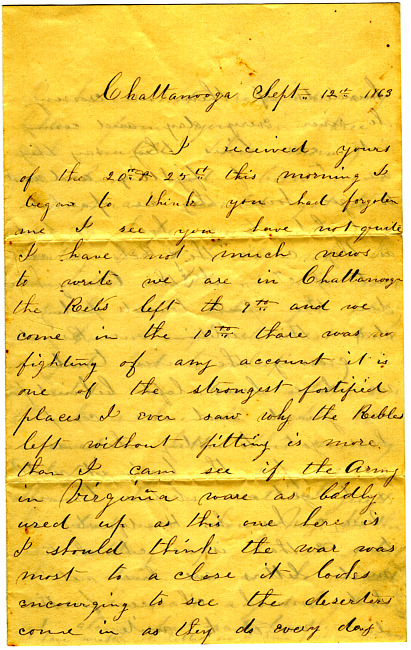 Chattanooga Sept 12th 1863
I received yours
of the 20th & 25th this morning I
began to think you had forgoten
me I see you have not quite
I have not much news
to write we are in Chattanooga
the Rebs left th 9th and we
come in the 10th thare was no
fighting of any account it is
one of the strongest fortified
places I ever saw why the Rebles
left without fitting is more
than I cam see if the Army
in Virginia ware as badly
used up as this one here is
I should think the war was
most to a close it looks
encourging to see the deserters
come in as they do every day